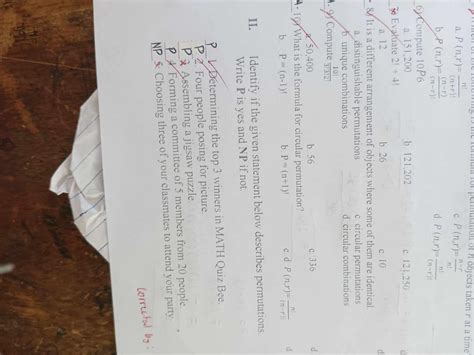 objects taken r at a time
a. P(n,r)= n!/(n+r)! c. P(n,r)=
b. P(n,r)= n!/(n−r)! d. P(n,r)=
6) Compute 10P6
a. 151,200 b 121,202 c. 121,250
Evaluate 2! + 4!
a. 12 b 26 c. 10
8) It is a different arrangement of objects where some of them are identical.
a. distinguishable permutations c circular permutations
b unique combinations d. circular combinations
9) Compute
a. 50,400 b. 56 c. 336
10) What is the formula for circular permutation?
b P = (n-1)! b P = (n+1)! c d P(n,r)= n!/(n−r)!
II. Identify if the given statement below describes permutations.
Write P is yes and NP if not.
P 1. Determining the top 3 winners in MATH Quiz Bee.
P 2. Four people posing for picture.
P 3. Assembling a jigsaw puzzle.
P 4. Forming a committee of 5 members from 20 people.
NP 5. Choosing three of your classmates to attend your party.
Corrected by: